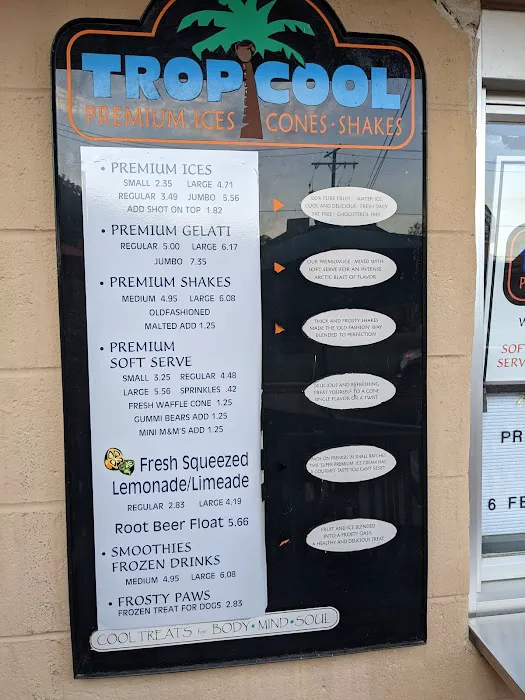 TROPICOOL
PREMIUM ICES CONES · SHAKES
• PREMIUM ICES
SMALL 2.35 LARGE 4.71
REGULAR 3.49 JUMBO 5.56
ADD SHOT ON TOP 1.82
• PREMIUM GELATI
REGULAR 5.00 LARGE 6.17
JUMBO 7.35
• PREMIUM SHAKES
MEDIUM 4.95 LARGE 6.08
OLDFASHIONED
MALTED ADD 1.25
• PREMIUM
SOFT SERVE
SMALL 3.25 REGULAR 4.48
LARGE 5.56 SPRINKLES .42
FRESH WAFFLE CONE 1.25
GUMMI BEARS ADD 1.25
MINI M&M'S ADD 1.25
Fresh Squeezed
Lemonade/Limeade
REGULAR 2.83 LARGE 4.19
Root Beer Float 5.66
• SMOOTHIES
FROZEN DRINKS
MEDIUM 4.95 LARGE 6.08
• FROSTY PAWS
FROZEN TREAT FOR DOGS 2.83
COOL TREATS for BODY • MIND • SOUL
100% PURE FRUIT WATER ICE
COOL AND DELICIOUS FRESH DAILY
FAT FREE CHOLESTEROL FREE
OUR PREMIUM ICE MIXED WITH
SOFT SERVE FOR AN INTENSE
ARCTIC BLAST OF FLAVOR
THICK AND FROSTY SHAKES
MADE THE OLD FASHION WAY
BLENDED TO PERFECTION
DELICIOUS AND REFRESHING
TREAT YOURSELF TO A CONE
SINGLE FLAVOR OR A TWIST
PREMIUM IN SMALL BATCHES
THIS SUPER PREMIUM ICE CREAM HAS
A GOURMET TASTE YOU CAN'T RESIST
FRUIT AND ICE BLENDED
INTO A FROSTY OASIS
A HEALTHY AND DELICIOUS TREAT
P
W
SOF
SERV
PR
6 FE